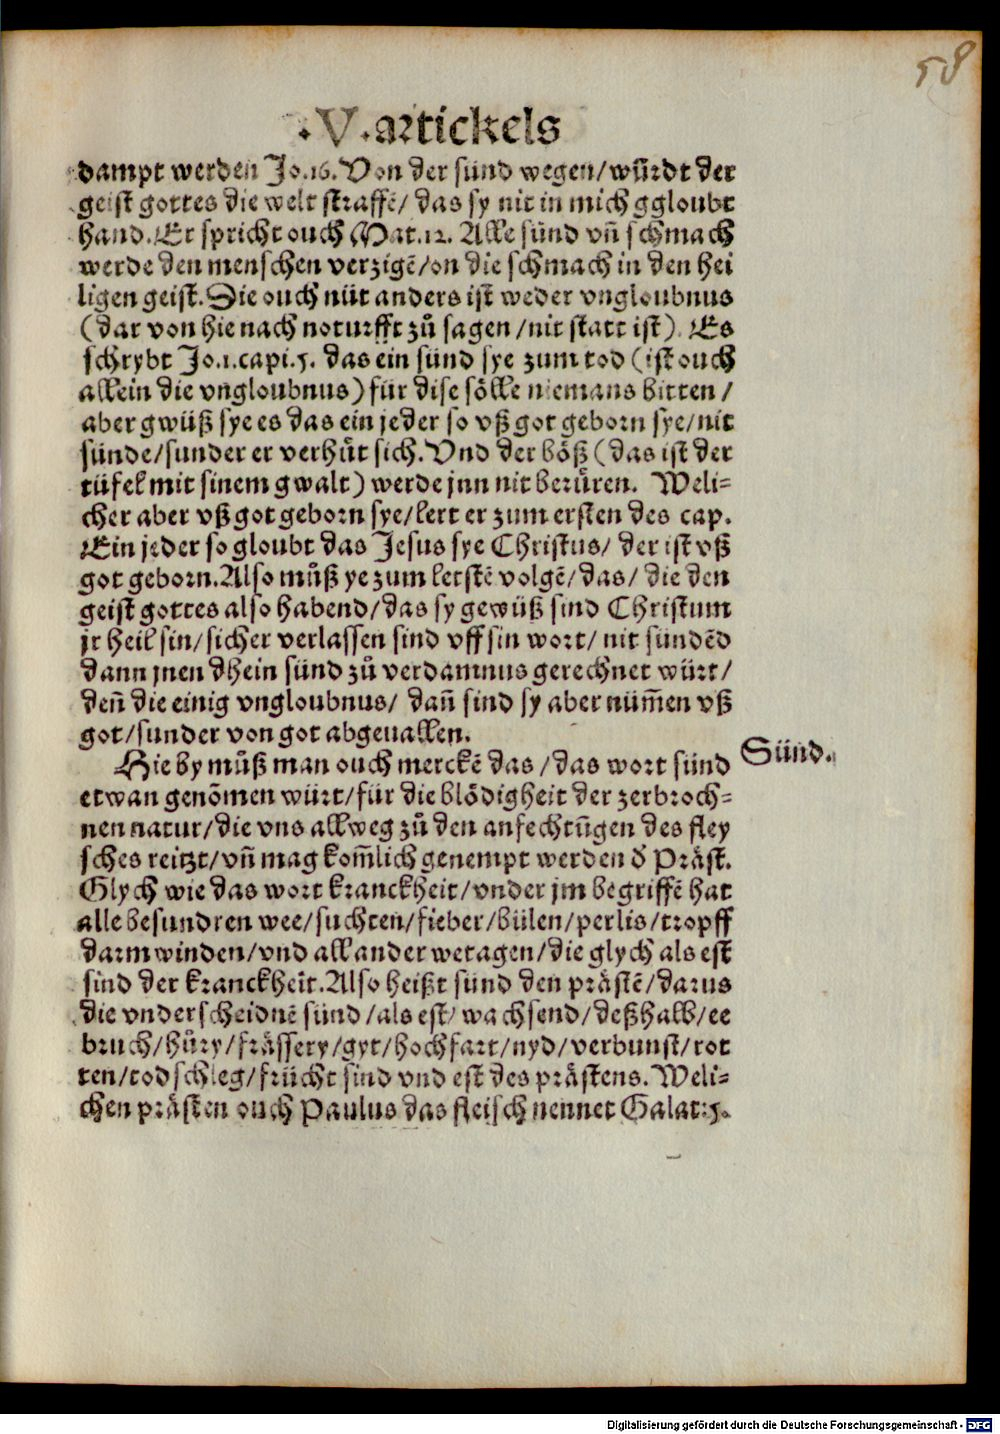 58
.V.artickels
dampt werden Jo.16. Von der sünd wegen/wūrdt der
geist gottes die welt straffē/ das sy nit in mich ggloubt
hand. Er spricht ouch Mat.12. Alle sünd vn̄ schmach
werde den menschen verzigē/on die schmach in den hei
ligen geist. Die ouch nüt anders ist weder vngloubnus
(dar von hie nach noturfft zů sagen/nit statt ist). Es
schrybt Jo.1.capi.5. das ein sünd sye zum tod (ist ouch
allein die vngloubnus) für dise sölle niemans bitten/
aber gwüß sye es das ein jeder so vß got geborn sye/nit
sünde/sunder er verhůt sich. Vnd der böß (das ist der
tüfel mit sinem gwalt) werde jnn nit berůren. Weli-
cher aber vß got geborn sye/lert er zum ersten des cap.
Ein jeder so gloubt das Jesus sye Christus/ der ist vß
got geborn. Also můß ye zum letstē volgē/das/ die den
geist gottes also habend/das sy gewüß sind Christum
jr heil sin/sicher verlassen sind vff sin wort/ nit sündēd
dann jnen dhein sünd zů verdamnus gerechnet würt/
den̄ die einig vngloubnus/ dan̄ sind sy aber nüm̄en vß
got/sunder von got abgeuallen.
Sünd.
Hie by můß man ouch merckē das/das wort sünd
etwan genōmen würt/für die blödigheit der zerbroch-
nen natur/die vns allweg zů den anfechtūgen des fley
sches reitzt/vn̄ mag kom̄lich genempt werden d̕ Präst.
Glych wie das wort kranckheit/vnder jm begriffē hat
alle besundren wee/suchten/fieber/bülen/perlis/tropff
darmwinden/vnd all ander wetagen/die glych als est
sind der kranckheit. Also heißt sünd den prästē/darus
die vnderscheidnē sünd/als est/wachsend/deßhalb/ee
bruch/hůry/frässery/gyt/hochfart/nyd/verbunst/rot
ten/todschleg/frücht sind vnd est des prästens. Weli-
chen prästen ouch Paulus das fleisch nennet Galat:5.
Digitalisierung gefördert durch die Deutsche Forschungsgemeinschaft - DFG